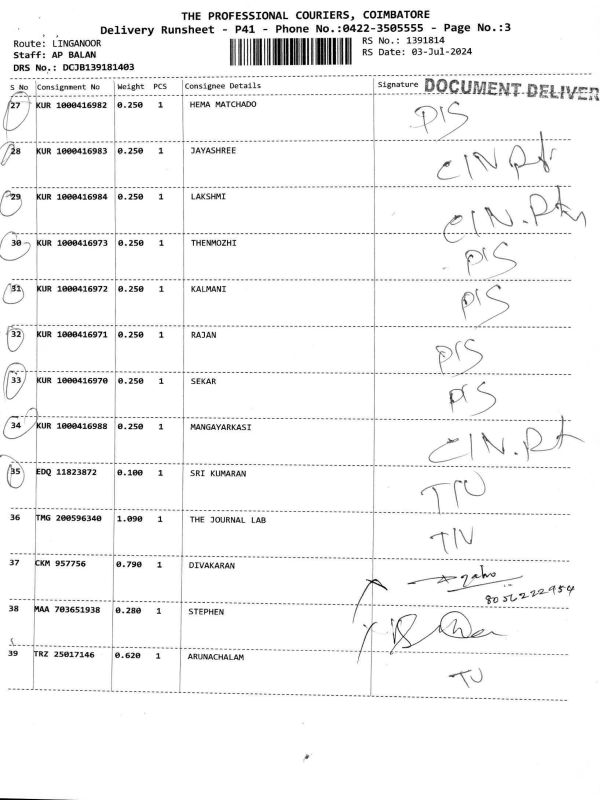 THE PROFESSIONAL COURIERS, COIMBATORE
Delivery Runsheet - P41 - Phone No.:0422-3505555 - Page No.:3
Route: LINGANOOR RS No.: 1391814
Staff: AP BALAN RS Date: 03-Jul-2024
DRS No.: DCJB139181403
S No Consignment No Weight PCS Consignee Details Signature DOCUMENT DELIVER
27 KUR 1000416982 0.250 1 HEMA MATCHADO P/S
28 KUR 1000416983 0.250 1 JAYASHREE
29 KUR 1000416984 0.250 1 LAKSHMI
30 KUR 1000416973 0.250 1 THENMOZHI P/S
31 KUR 1000416972 0.250 1 KALMANI P/S
32 KUR 1000416971 0.250 1 RAJAN P/S
33 KUR 1000416970 0.250 1 SEKAR P/S
34 KUR 1000416988 0.250 1 MANGAYARKASI
35 EDQ 11823872 0.100 1 SRI KUMARAN
36 TMG 200596340 1.090 1 THE JOURNAL LAB
37 CKM 957756 0.790 1 DIVAKARAN
38 MAA 703651938 0.280 1 STEPHEN
39 TRZ 25017146 0.620 1 ARUNACHALAM